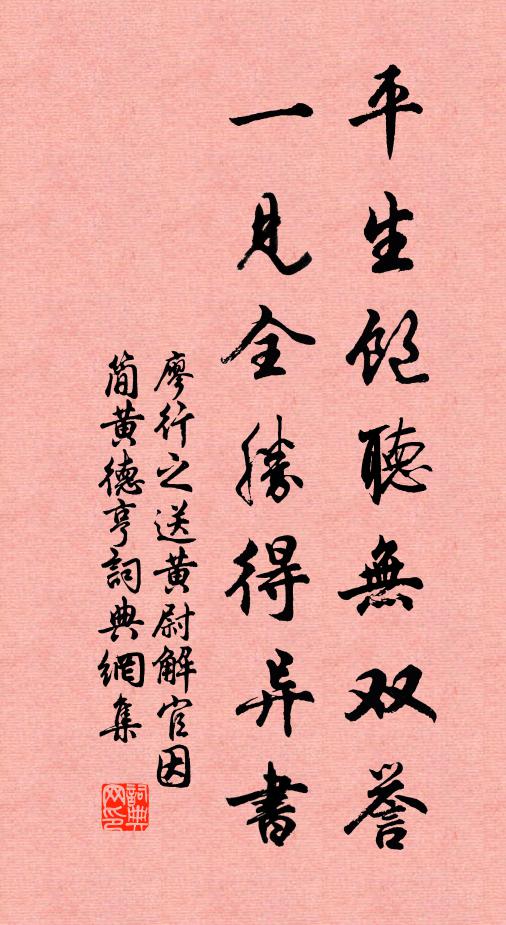 平生饱聽無双誉
一見全勝得异書
廖行之送黄尉解官因
简黄德亨詞典網集
詞典网印